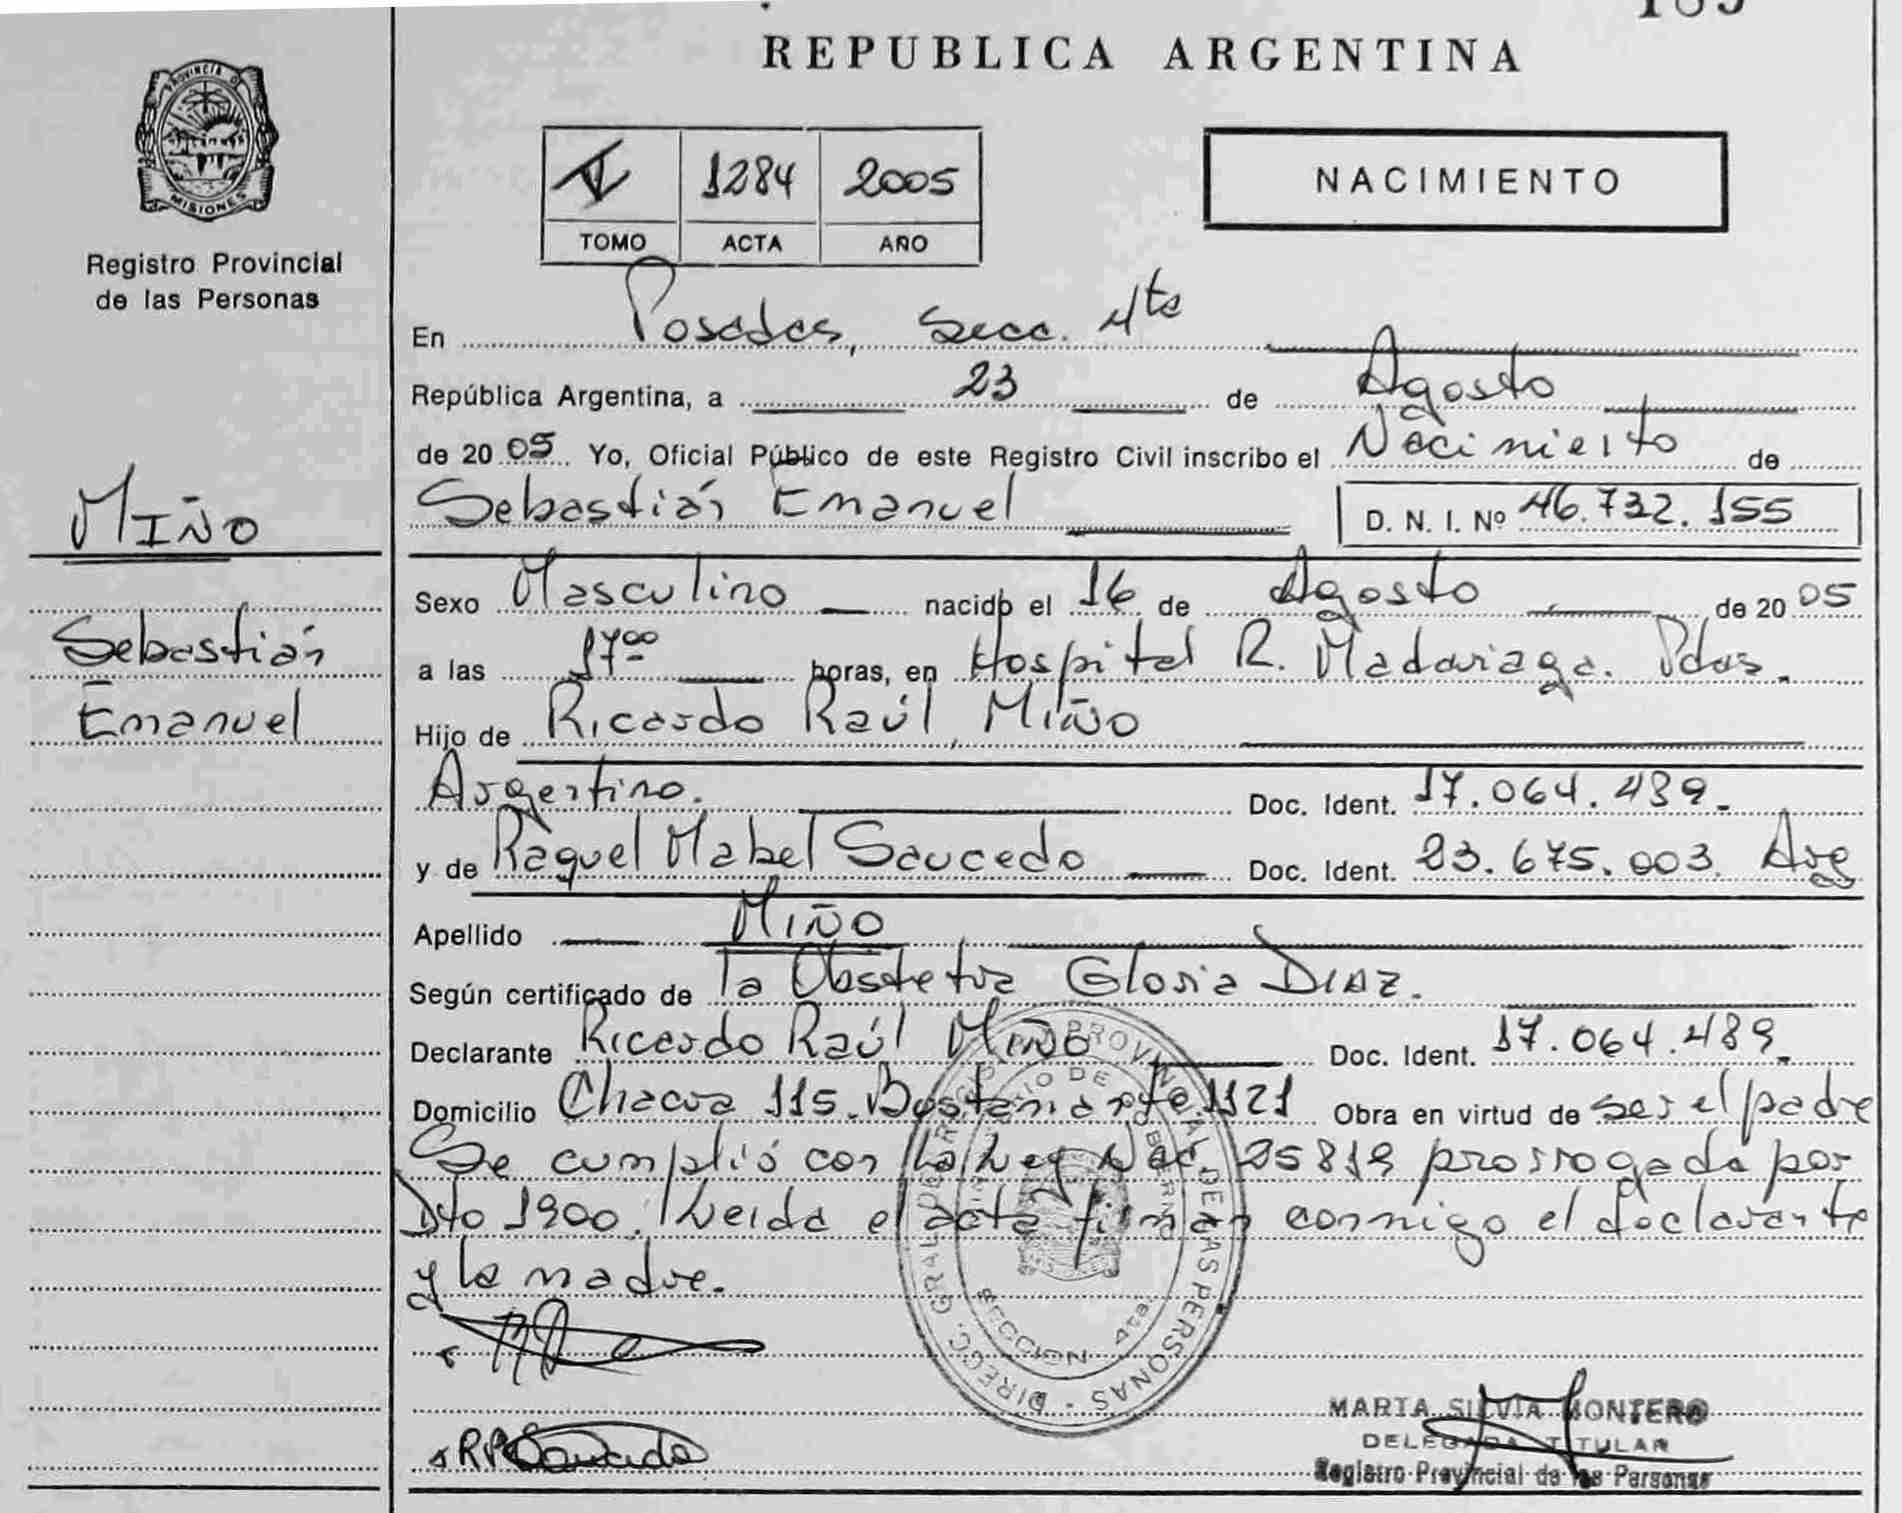 REPUBLICA ARGENTINA
PROVINCIA DE MISIONES
Registro Provincial
de las Personas
1284 2005
TOMO ACTA AÑO
NACIMIENTO
En Posadas, Secc. 4ta
República Argentina, a 23 de Agosto
de 2005 Yo, Oficial Público de este Registro Civil inscribo el Nacimiento de
Sebastián Emanuel D. N. I. Nº 46.732.155
MIÑO
Sebastián
Emanuel
Sexo Masculino nacido el 16 de Agosto de 2005
a las 17 00 horas, en Hospital R. Madariaga. Pdas.
Hijo de Ricardo Raúl MIÑO
Argentino. Doc. Ident. 17.064.489.
y de Raquel Mabel Saucedo Doc. Ident. 23.675.003. Arg
Apellido MIÑO
Según certificado de la Obstetra Gloria DIAZ.
Declarante Ricardo Raúl MIÑO Doc. Ident. 17.064.489.
Domicilio Chacra 115. Bustamante 1121 Obra en virtud de ser el padre
Se cumplió con la Ley Nac. 25819 prorrogada por
Dto 1900. Leida el acta firman conmigo el declarante
y la madre.
DIRECC. GRAL DE REGISTRO PROVINCIAL DE LAS PERSONAS
MINISTERIO DE GOBIERNO
SECCION 4ta.
MARTA SILVIA MONTERO
DELEGADA TITULAR
Registro Provincial de las Personas